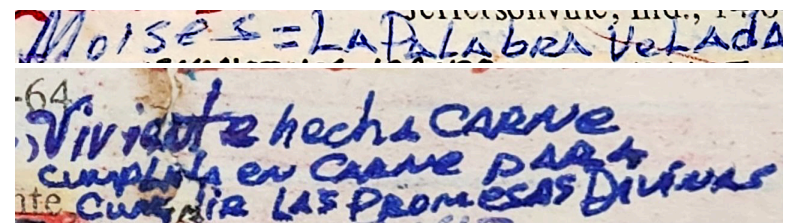 Jeffersonville, Ind.,
Moises = LA PALAbRA VeLAdA
-64
Viviente hecha CARNe
cumplida eN CARNe PARA
nte cumplir LAS PROMESAS DiViNAS